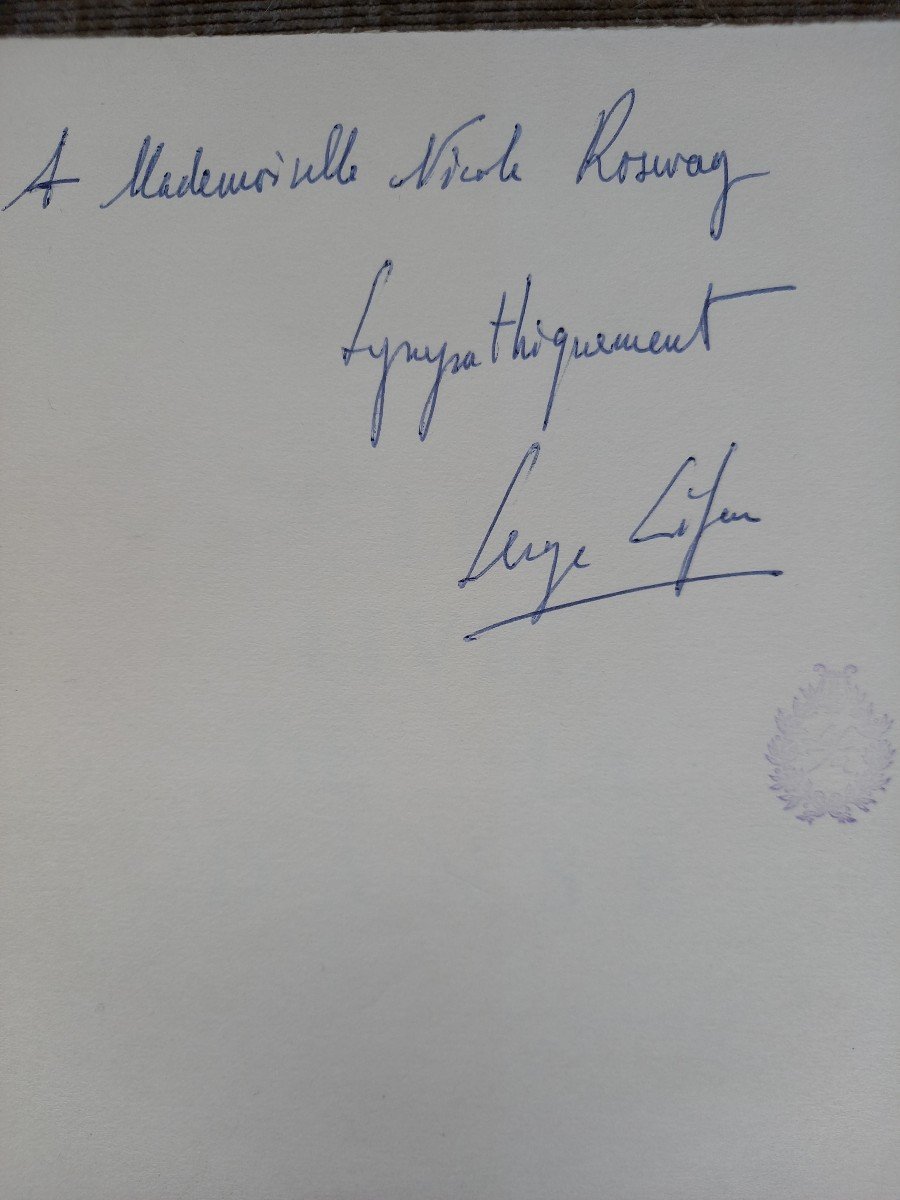 A Mademoiselle Nicole Roswag
Sympathiquement
Serge Lifar